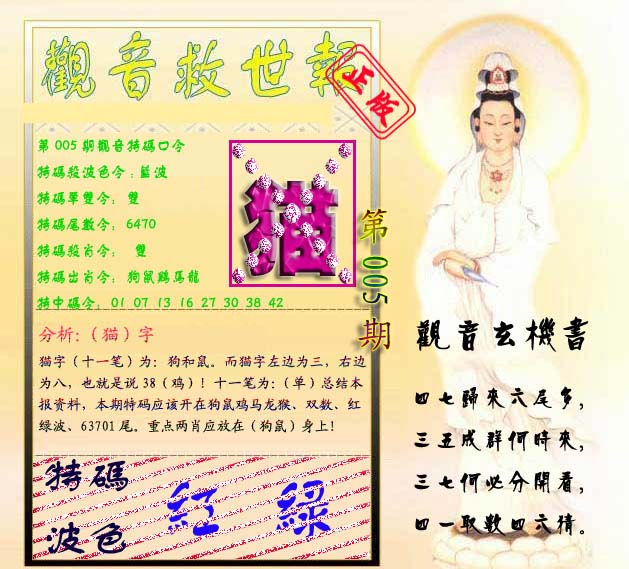 觀音救世報
正版
第005期觀音特碼口令
特碼殺波色令：藍波
特碼單雙令：雙
特碼尾數令：6470
特碼殺肖令：雙
特碼出肖令：狗鼠鷄馬龍
特中碼令：01 07 13 16 27 30 38 42
猫
第005期
分析:（猫）字
猫字（十一笔）为：狗和鼠。而猫字左边为三，右边
为八，也就是说38（鸡）！十一笔为:（单）总结本
报资料，本期特码应该开在狗鼠鸡马龙猴、双数、红
绿波、63701尾。重点两肖应放在（狗鼠）身上!
特碼
波色
紅 綠
觀音玄機書
四七歸來六尾多，
三五成群何時來，
三七何必分開看，
四一取數四六猜。